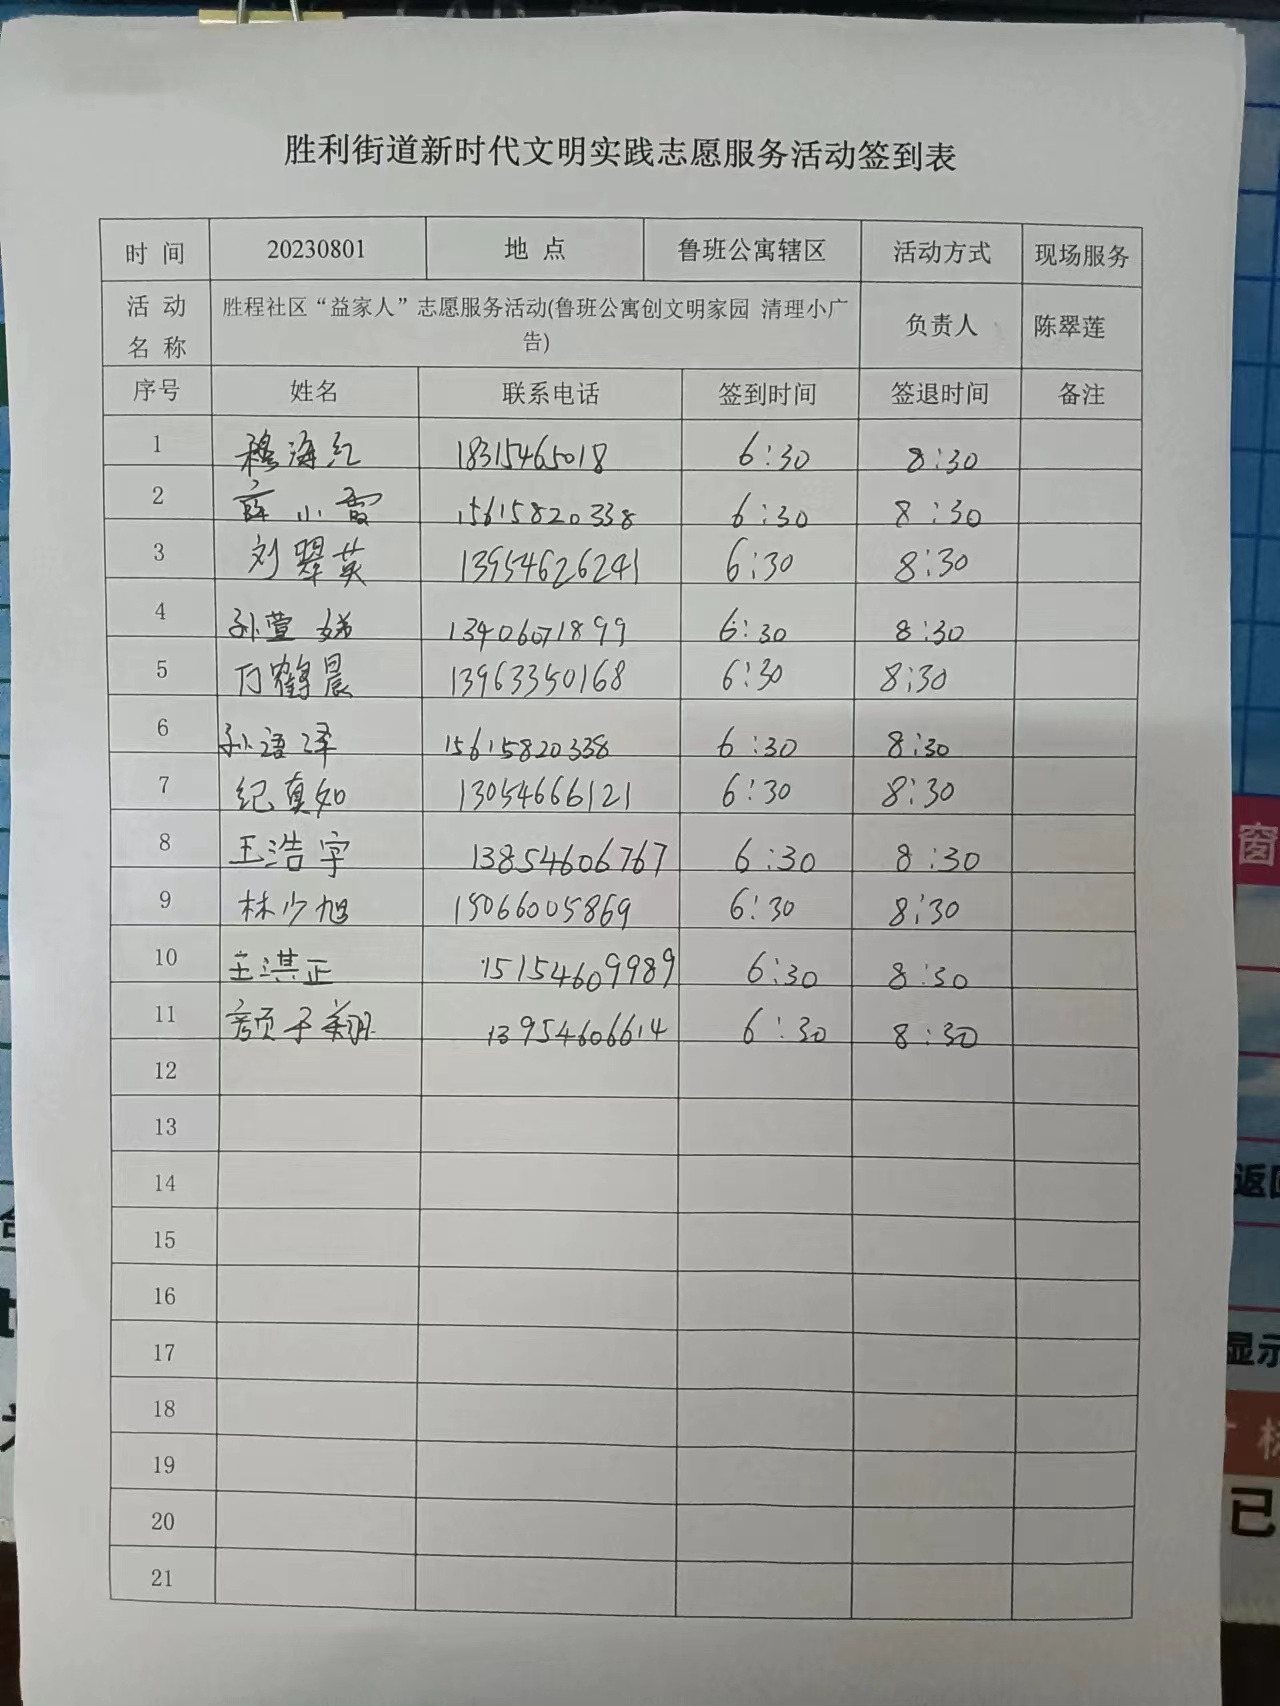 胜利街道新时代文明实践志愿服务活动签到表
时 间 20230801 地 点 鲁班公寓辖区 活动方式 现场服务
活 动 名 称 胜程社区“益家人”志愿服务活动(鲁班公寓创文明家园 清理小广告) 负责人 陈翠莲
序号 姓名 联系电话 签到时间 签退时间 备注
1 穆海红 18315465018 6:30 8:30
2 薛小霞 15615820338 6:30 8:30
3 刘翠英 13954626241 6:30 8:30
4 孙萱娣 13406071899 6:30 8:30
5 万鹤晨 13963350168 6:30 8:30
6 孙语泽 15615820338 6:30 8:30
7 纪真如 13054666121 6:30 8:30
8 王浩宇 13854606767 6:30 8:30
9 林少旭 15066005869 6:30 8:30
10 王淇正 15154609989 6:30 8:30
11 颜子翔 13954606614 6:30 8:30
12
13
14
15
16
17
18
19
20
21
窗
返回
显示
已